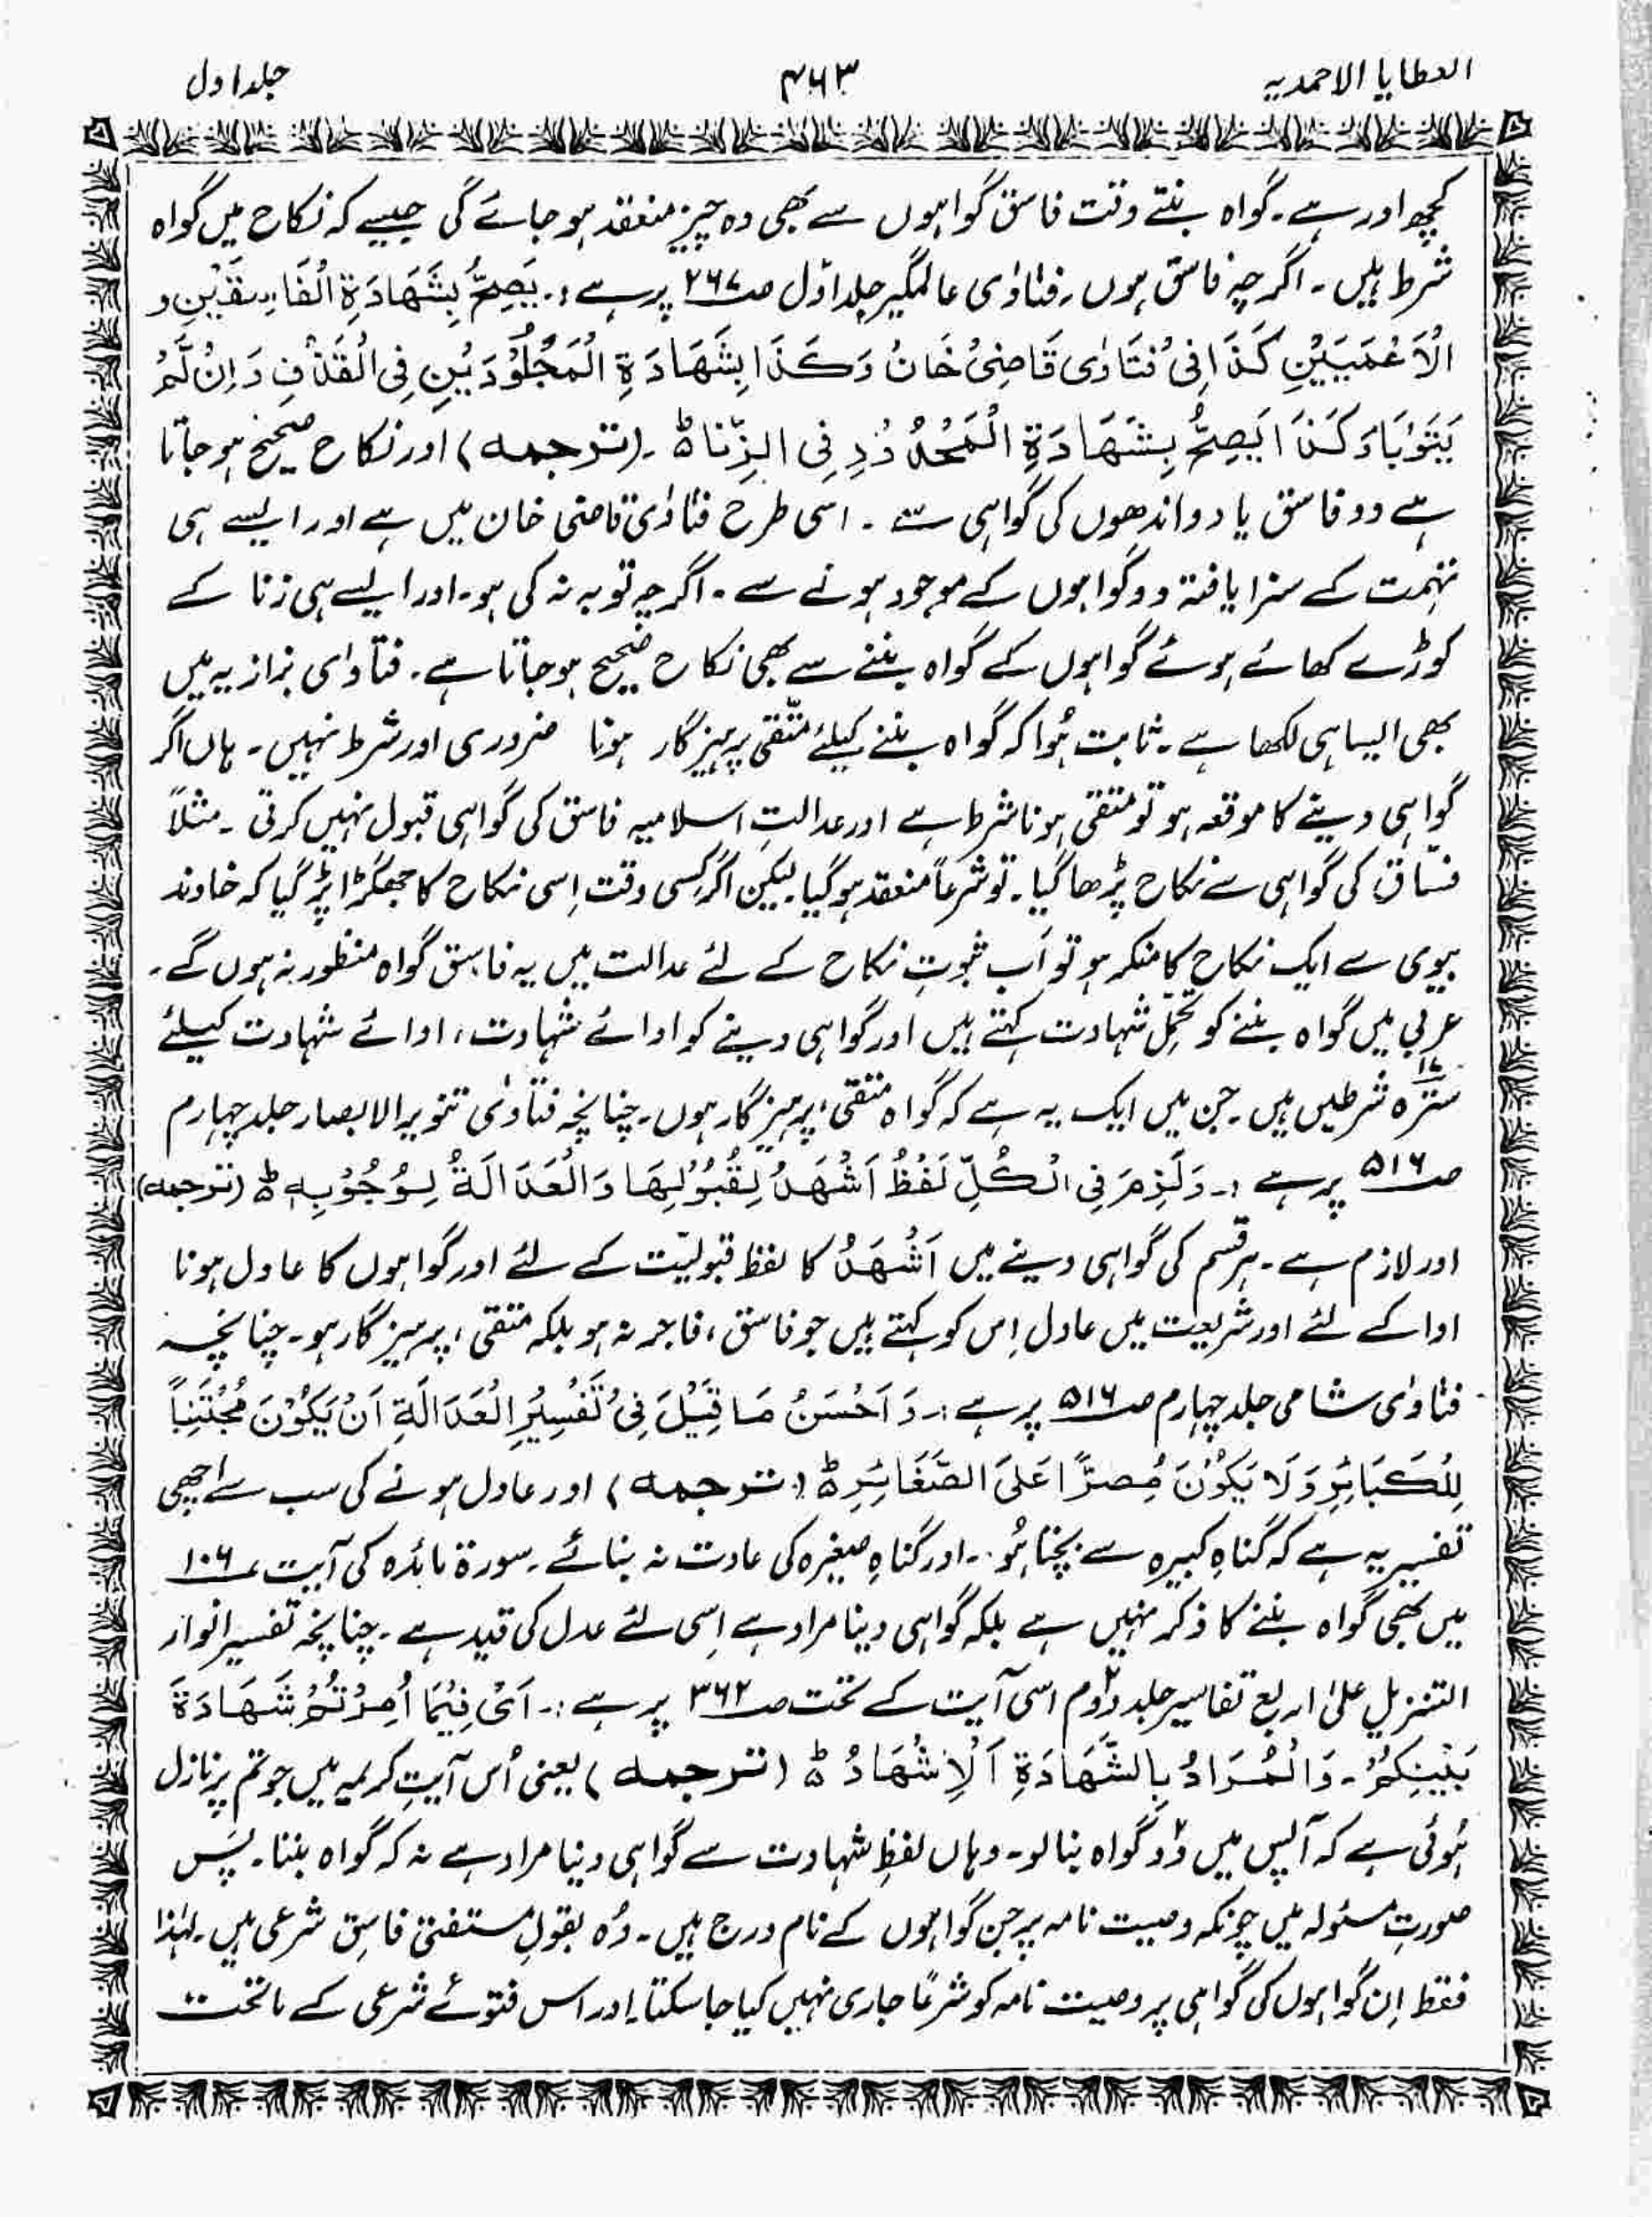 العطایا الاحمدیہ
۴۶۳
جلد اول
کچھ اور ہے۔ گواہ بنتے وقت فاسق گواہوں سے بھی وہ چیز منعقد ہو جائے گی جیسے کہ نکاح میں گواہ
شرط ہیں۔ اگرچہ فاسق ہوں۔ فتاوٰی عالمگیر جلد اوّل صـ۲۶۷ پر ہے :۔ یَصِحُّ بِشَھَادَۃِ الْفَاسِقَیْنِ و
الْاَعْمَیَیْنِ کَذَا فِیْ فَتَاوٰی قَاضِیْ خَانْ وَکَذَا بِشَھَادَۃِ الْمَجْلُوْدَیْنِ فِی الْقَذْفِ وَاِنْ لَّمْ
یَتَوْبَا وَکَذَا یَصِحُّ بِشَھَادَۃِ الْمَحْدُوْدِ فِی الزِّنَا ط ۔ (ترجمہ) اور نکاح صحیح ہو جاتا
ہے دو فاسق یا دو اندھوں کی گواہی سے ۔ اسی طرح فتاوٰی قاضی خان میں ہے اور ایسے ہی
تہمت کے سزا یافتہ دو گواہوں کے موجود ہونے سے ۔ اگرچہ توبہ نہ کی ہو۔ اور ایسے ہی زنا کے
کوڑے کھائے ہوئے گواہوں کے گواہ بننے سے بھی نکاح صحیح ہو جاتا ہے۔ فتاوای بزازیہ میں
بھی ایسا ہی لکھا ہے۔ ثابت ہُوا کہ گواہ بننے کیلئے متّقی پرہیزگار ہونا ضروری اور شرط نہیں۔ ہاں اگر
گواہی دینے کا موقعہ ہو تو متقی ہونا شرط ہے اور عدالتِ اسلامیہ فاسق کی گواہی قبول نہیں کرتی ۔ مثلاً
فسّاق کی گواہی سے نکاح پڑھا گیا۔ تو شرعاً منعقد ہو گیا۔ لیکن اگر کسی وقت اِسی نکاح کا جھگڑا پڑ گیا کہ خاوند
بیوی سے ایک نکاح کا منکر ہو تو اَب ثبوتِ نکاح کے لئے عدالت میں یہ فاسق گواہ منظور نہ ہوں گے۔
عربی میں گواہ بننے کو تحمّلِ شہادت کہتے ہیں اور گواہی دینے کو ادائے شہادت، ادائے شہادت کیلئے
سترہ ۱۷ شرطیں ہیں۔ جن میں ایک یہ ہے کہ گواہ متقی، پرہیزگار ہوں۔ چنانچہ فتاوٰی تنویر الابصار جلد چہارم
صـ۵۱۶ پر ہے :۔ وَلَزِمَ فِی الْکُلِّ لَفْظُ اَشْھَدُ لِقُبُوْلِھَا وَالْعَدَالَۃُ لِوُجُوْبِہٖ ط (ترجمہ)
اور لازم ہے۔ ہر قسم کی گواہی دینے میں اَشْھَدُ کا لفظ قبولیّت کے لئے اور گواہوں کا عادل ہونا
ادا کے لئے اور شریعت میں عادل اِس کو کہتے ہیں جو فاسق، فاجر نہ ہو بلکہ متقی، پرہیزگار ہو۔ چنانچہ
فتاوٰی شامی جلد چہارم صـ۵۱۶ پر ہے :۔ وَ اَحْسَنُ مَا قِیْلَ فِیْ تَفْسِیْرِ الْعَدَالَۃِ اَنْ یَکُوْنَ مُجْتَنِباً
لِلْکَبَائِرِ وَلَا یَکُوْنَ مُصِرًّا عَلَی الصَّغَائِرِ ط (ترجمہ) اور عادل ہونے کی سب سے اچھی
تفسیر یہ ہے کہ گناہِ کبیرہ سے بچتا ہُو۔ اور گناہِ صغیرہ کی عادت نہ بنائے ۔ سورۃ مائدہ کی آیت ۱۰۶
میں بھی گواہ بننے کا ذکر نہیں ہے بلکہ گواہی دینا مراد ہے اِسی لئے عدل کی قید ہے ۔ چنانچہ تفسیر انوار
التنزیل علیٰ اربع تفاسیر جلد دوم۲ اسی آیت کے تحت صـ۳۶۲ پر ہے :۔ اَیْ فِیْمَا اُمِرْتُمْ شَھَادَۃَ
بَیْنِکُمْ ۔ وَالْمُرَادُ بِالشَّھَادَۃِ اَلْاِشْھَادُ ط (ترجمہ) یعنی اُس آیتِ کریمہ میں جو تم پر نازل
ہُوئی ہے کہ آپس میں دو۲ گواہ بنالو۔ وہاں لفظِ شہادت سے گواہی دینا مراد ہے نہ کہ گواہ بننا۔ پَس
صورتِ مسئولہ میں چونکہ وصیت نامہ پر جن گواہوں کے نام درج ہیں۔ وُہ بقولِ مستفتی فاسق شرعی ہیں۔ لہٰذا
فقط اِن گواہوں کی گواہی پر وصیت نامہ کو شرعًا جاری نہیں کیا جا سکتا۔ اور اس فتوئے شرعی کے ماتحت